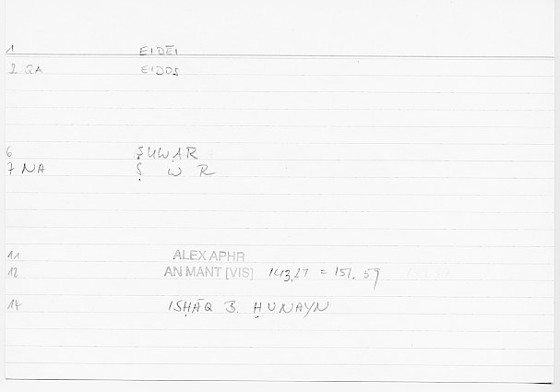 1 EIDĒI
2 QA EIDOS
6 ṢUWAR
7 NA Ṣ W R
11 ALEX APHR
12 AN MANT [VIS] 143,27 = 151, 59
14 ISḤĀQ B. ḤUNAYN